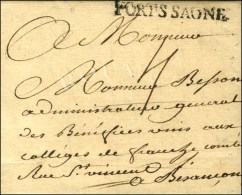 PORTS SAONE
A Monsieur
Monsieur Besson
administrateur general
des Bénéfices unis aux
colléges de franche comté
Rue St vincent
a Besançon